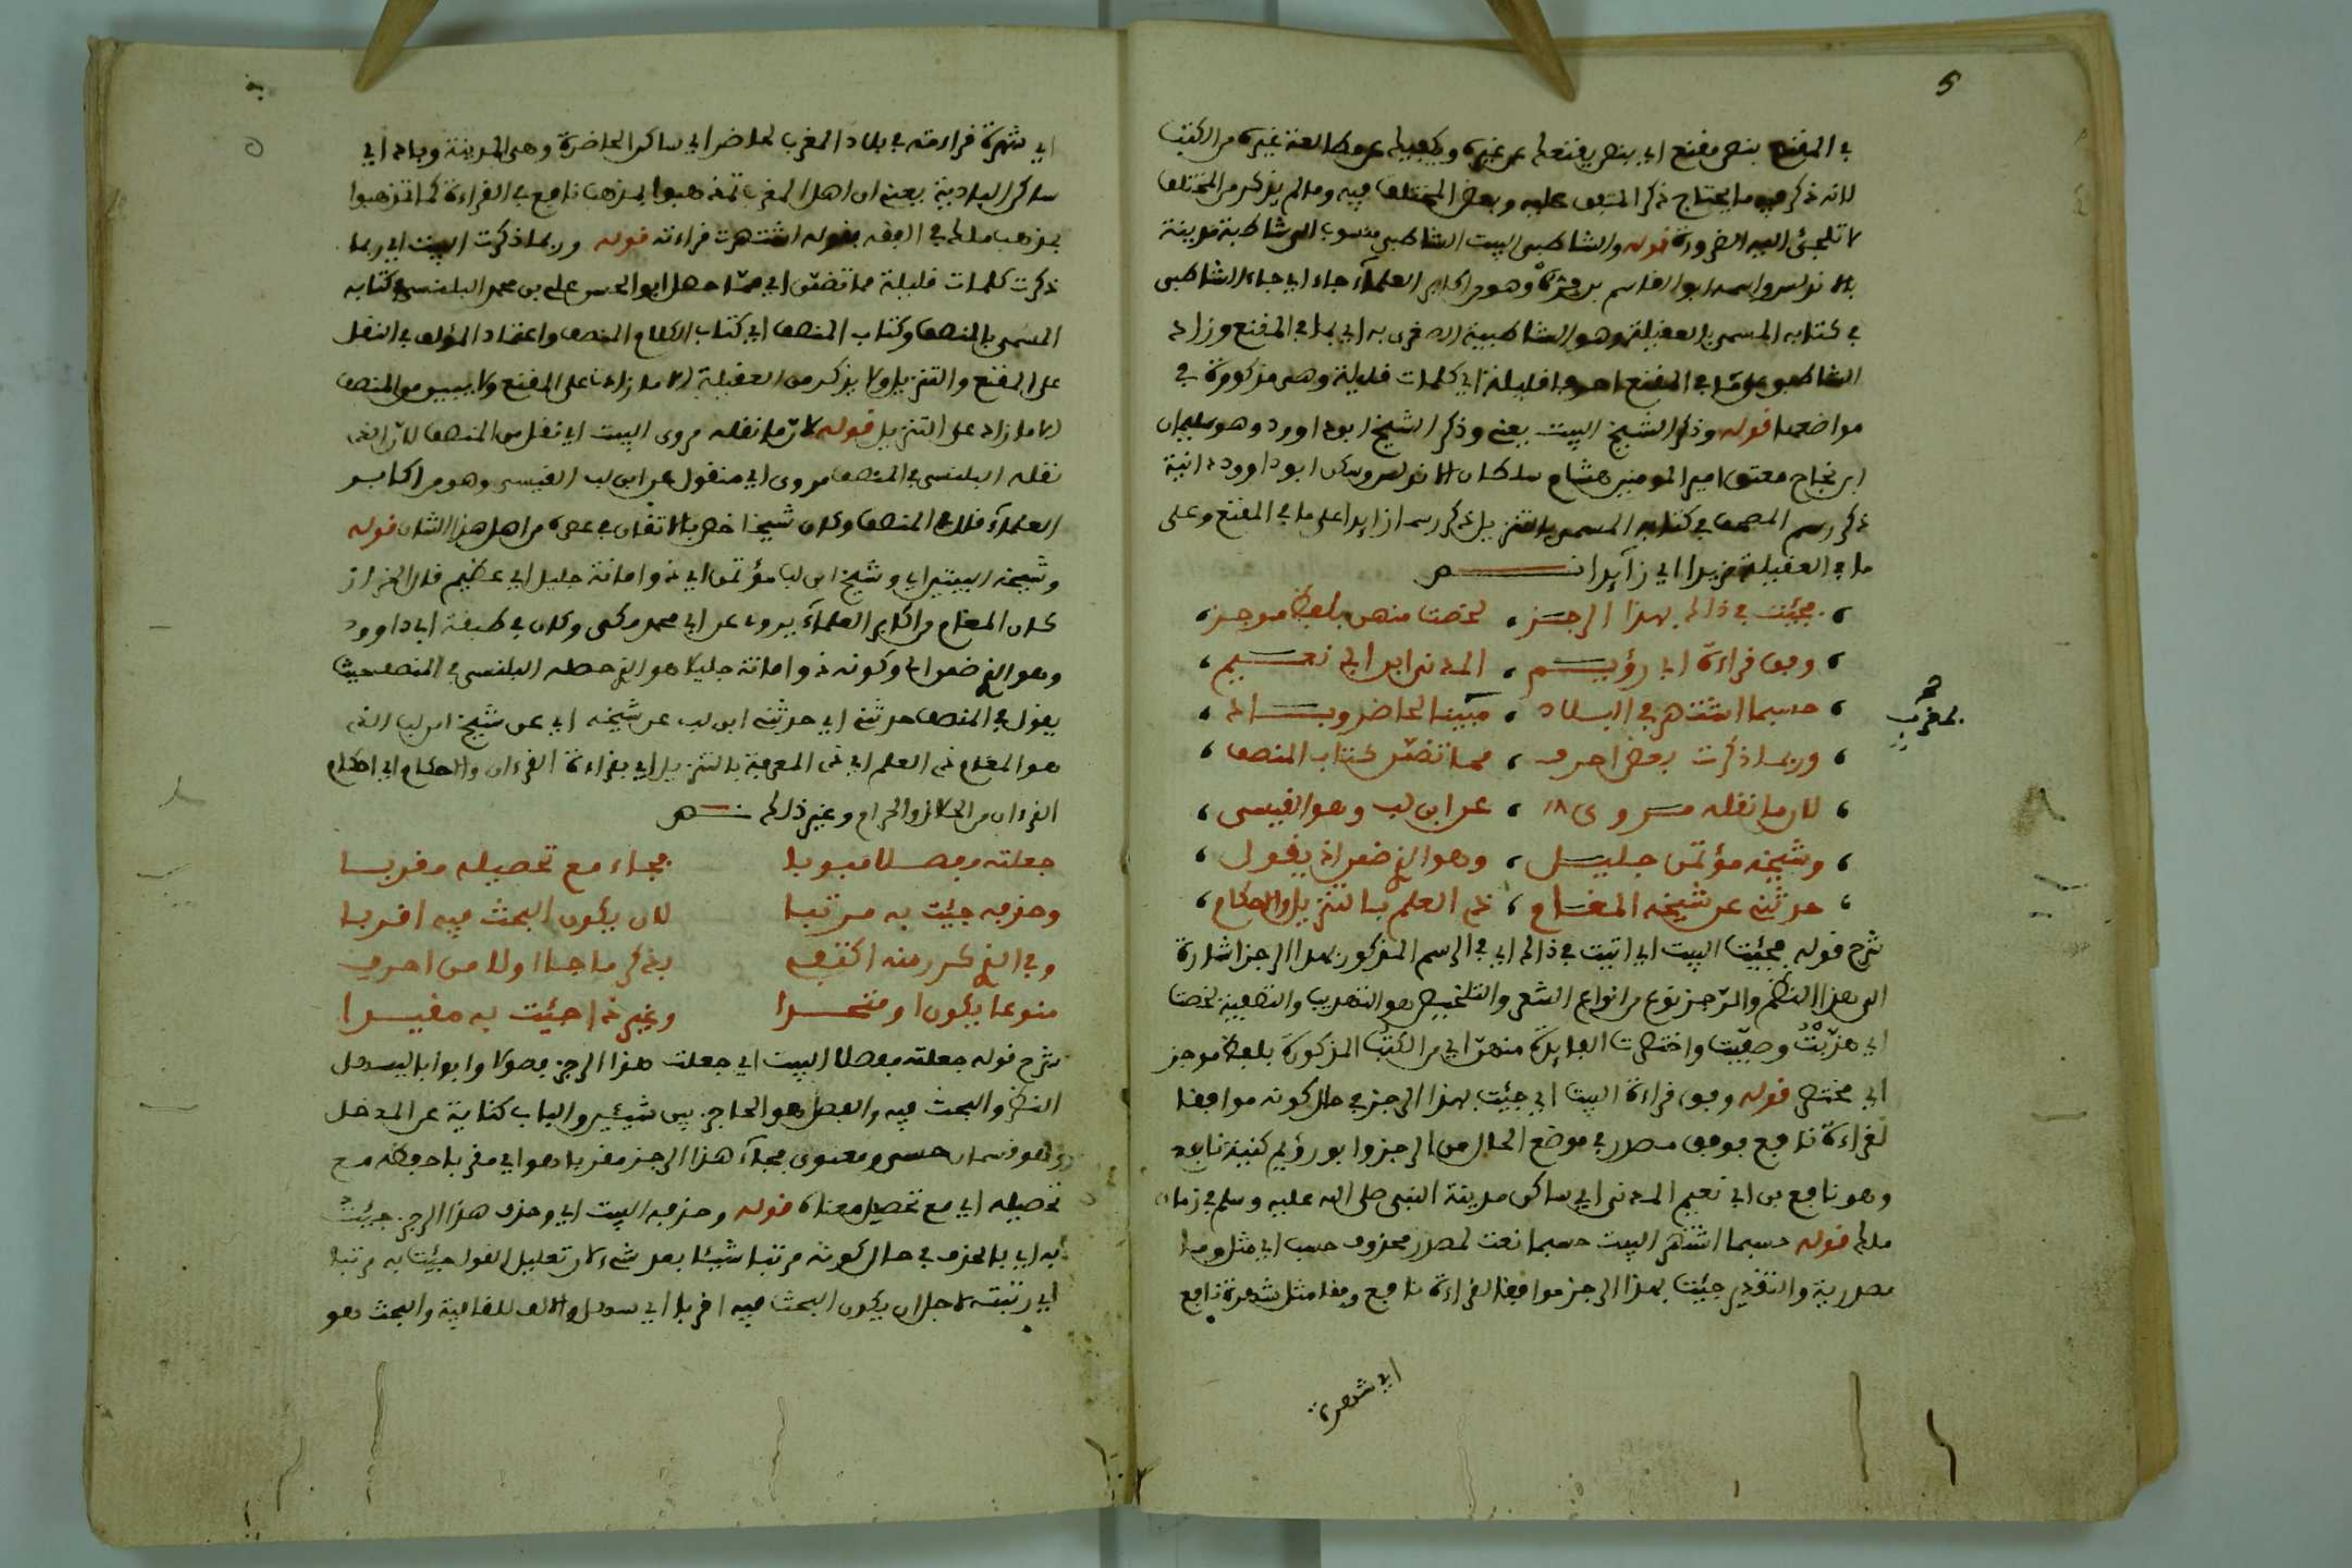 5
في المقنع بنص مقنع اي بنص يقنعك عن غيره ويكفيك عن مطالعة غيره من الكتب
لانه ذكر فيه ما يحتاج ذكر المتفق عليه وبعض المختلف فيه وما لم يذكر من المختلف
لا تلجئ اليه الضرورة قوله والشاطبي البيت الشاطبي منسوب الى شاطبة مدينة
بالاندلس واسمه ابو القاسم بن فيره وهو من اكابر العلمآء جاء اي جاء الشاطبي
في كتابه المسمى بالعقيلة وهو الشاطبية الصغرى به اي بما في المقنع وزاد
الشاطبي على ما في المقنع احرفا قليلة اي كلمات قليلة وهي مذكورة في
مواضعها قوله وذكر الشيخ البيت يعني وذكر الشيخ ابو داوود وهو سليمان
ابن نجاح معتق امير المومنين هشام سلطان الاندلس وسكن ابو داوود دانية
ذكر رسم المصحف في كتابه المسمى بالتنزيل ذكر رسما زايدا على ما في المقنع وعلى
ما في العقيلة مزيدا اي زآيدا نص
فجئت في ذاك بهذا الرجز ، لخصت منهن بلفظ موجز ،
وفق قراءة ابي رؤيم ، المدني ابن ابي نعيم ،
حسبما اشتهر في البلاد ، مبينا لحاضر وباد ،
بمغرب
صح
وربما ذكرت بعض احرف ، مما تضمن كتاب المنصف ،
لان ما نقله مروي ، عن ابن لب وهو القيسي ،
وشيخه مؤتمن جليل ، وهو الذي ضمن اذ يقول ،
حدثني عن شيخه المغامي ، ذي العلم بالتنزيل والاحكام ،
شرح قوله فجئت البيت اي اتيت في ذاك اي في الرسم المذكور بهذا الرجز اشارة
الى هذا النظم والرجز نوع من انواع الشعر والتلخيص هو التهذيب والتصفية لخصت
اي هذبت وصفيت واختصرت الفايدة منهن اي من الكتب المذكورة بلفظ موجز
اي مختصر قوله وفق قراءة البيت اي جئت بهذا الرجز في حال كونه موافقا
لقراءة نافع فوفق مصدر في موضع الحال من الرجز وابو رؤيم كنية نافع
وهو نافع بن ابي نعيم المدني اي ساكن مدينة النبي صلى الله عليه وسلم في زمان
مالك قوله حسبما اشتهر البيت حسبما نعت لمصدر محذوف حسب اي مثل وما
مصدرية والتقدير جئت بهذا الرجز موافقا لقراءة نافع وفقا مثل شهرة نافع
اي شهرة
اي شهرة قراءته في بلاد المغرب لحاضر اي ساكن الحاضرة وهي المدينة وباد اي
ساكن البادية يعني ان اهل المغرب تمذهبوا بمذهب نافع في القراءة كما تمذهبوا
بمذهب مالك في الفقه بقوله اشتهرت قراءته قوله وربما ذكرت البيت اي ربما
ذكرت كلمات قليلة مما تضمن اي مما حصل ابو الحسن علي بن محمد البلنسي في كتابه
المسمى بالمنصف وكتاب المنصف اي كتاب الكلام المنصف واعتماد المؤلف في النقل
على المقنع والتنزيل ولا يذكر من العقيلة الا ما زادت على المقنع ولا يبين من المنصف
الا ما زاد على التنزيل قوله لان ما نقله مروي البيت اي نقل من المنصف لان الذي
نقله البلنسي في المنصف مروي اي منقول عن ابن لب القيسي وهو من اكابر
العلمآء قال في المنصف وكان شيخا خص بالاتقان في عصره من اهل هذا الشان قوله
وشيخه البيتين اي وشيخ ابن لب مؤتمن اي ذو امانة جليل اي عظيم قال الخراز
كان المغامي من اكابر العلمآء يروي عن ابي محمد مكي وكان في طبقة ابي داوود
وهو الذي ضمن اي وكونه ذو امانة جليلا هو الذي حصله البلنسي في المنصف حيث
يقول في المنصف حدثني اي حدثني ابن لب عن شيخه اي عن شيخ ابن لب الذي
هو المغامي ذي العلم اي ذي المعرفة بالتنزيل اي بقراءة القرءان والاحكام اي احكام
القرءان من الحلال والحرام وغير ذلك نص
جعلته مفصلا مبوبا فجاء مع تحصيله مقربا
وحذفه جئت به مرتبا لان يكون البحث فيه اقربا
وفي الذي كرر منه اكتفي بذكر ما جا اولا من احرف
منوعا يكون او متحدا وغير ذا جئت به مقيدا
شرح قوله جعلته مفصلا البيت اي جعلت هذا الرجز فصولا وابوابا ليسهل
النظر والبحث فيه والفصل هو الحاجز بين شيئين والباب كناية عن المدخل
وهو قسمان حسي ومعنوي فجآء هذا الرجز مقربا هو اي مقربا حفظه مع
تحصيله اي مع تحصيل معناه قوله وحذفه البيت اي وحذف هذا الرجز جيئت
به اي بالحذف في حال كونه مرتبا شيئا بعد شيء لان تعليل لقول جيئت به مرتبا
اي رتبته لاجل ان يكون البحث فيه اقربا اي سهل والالف للقافية والبحث هو